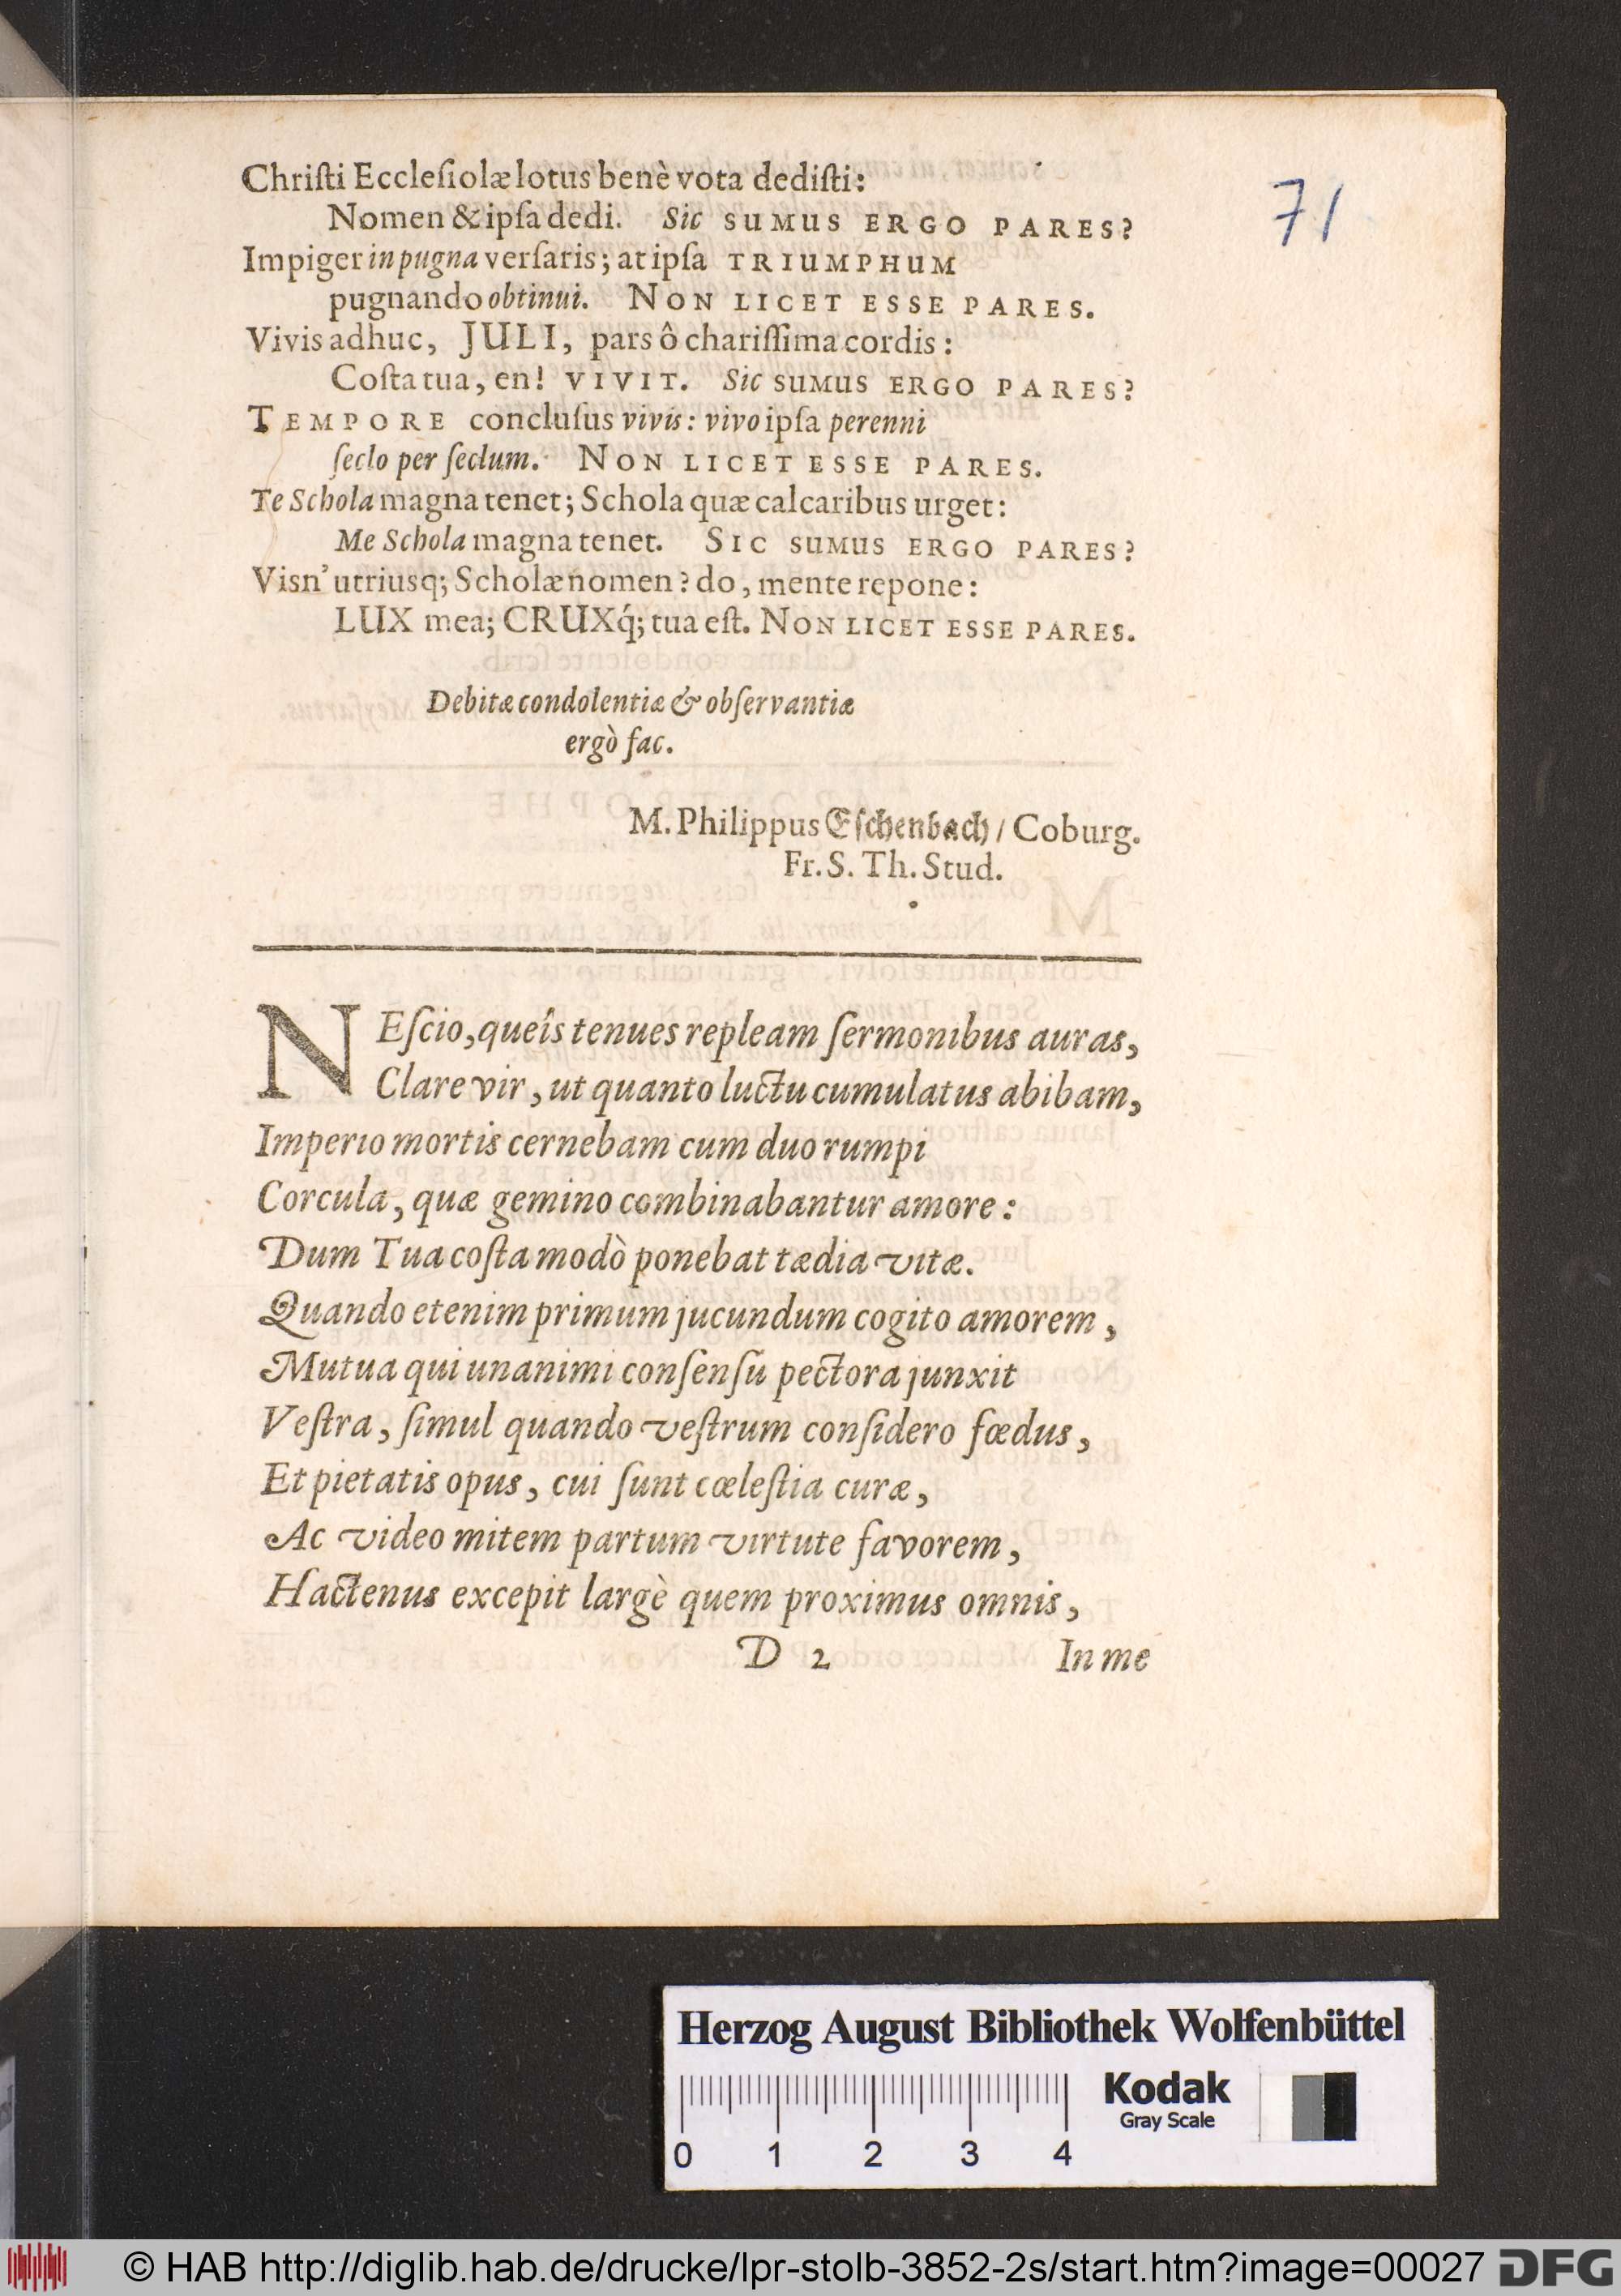 Chriſti Eccleſiolæ lotus benè vota dediſti:
71
Nomen & ipſa dedi. Sic SUMUS ERGO PARES?
Impiger in pugna verſaris; at ipſa TRIUMPHUM
pugnando obtinui. NON LICET ESSE PARES.
Vivis adhuc, JULI, pars ô chariſſima cordis:
Coſta tua, en! VIVIT. Sic SUMUS ERGO PARES?
TEMPORE concluſus vivis: vivo ipſa perenni
ſeclo per ſeclum. NON LICET ESSE PARES.
Te Schola magna tenet; Schola quæ calcaribus urget:
Me Schola magna tenet. SIC SUMUS ERGO PARES?
Visn' utriusq; Scholæ nomen? do, mente repone:
LUX mea; CRUXq́; tua eſt. NON LICET ESSE PARES.
Debitæ condolentiæ & obſervantiæ
ergò fac.
M. Philippus Eſchenbach / Coburg.
Fr. S. Th. Stud.
NEſcio, queîs tenues repleam ſermonibus auras,
Clare vir, ut quanto luctu cumulatus abibam,
Imperio mortis cernebam cum duo rumpi
Corcula, quæ gemino combinabantur amore:
Dum Tua coſta modò ponebat tædia vitæ.
Quando etenim primum jucundum cogito amorem,
Mutua qui unanimi conſenſu pectora junxit
Veſtra, ſimul quando veſtrum conſidero fœdus,
Et pietatis opus, cui ſunt cœleſtia curæ,
Ac video mitem partum virtute favorem,
Hactenus excepit largè quem proximus omnis,
D 2 In me
Herzog August Bibliothek Wolfenbüttel
Kodak
Gray Scale
0 1 2 3 4
© HAB http://diglib.hab.de/drucke/lpr-stolb-3852-2s/start.htm?image=00027 DFG